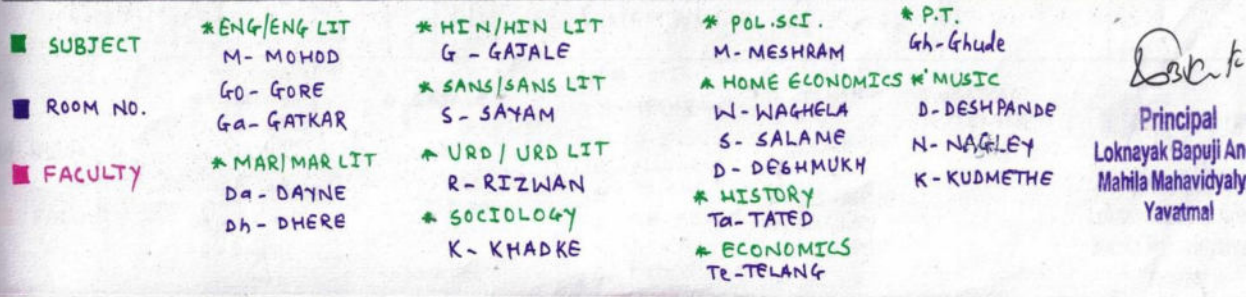 SUBJECT
ROOM NO.
FACULTY
* ENG/ENG LIT
M- MOHOD
Go- GORE
Ga- GATKAR
* MAR/MAR LIT
Da- DAYNE
Dh- DHERE
* HIN/HIN LIT
G - GAJALE
* SANS/SANS LIT
S- SAYAM
* URD / URD LIT
R- RIZWAN
* SOCIOLOGY
K- KHADKE
* POL.SCI.
M- MESHRAM
* HOME ECONOMICS
W- WAGHELA
S- SALAME
D- DESHMUKH
* HISTORY
Ta- TATED
* ECONOMICS
Te-TELANG
* P.T.
Gh- Ghude
* MUSIC
D- DESHPANDE
N- NAGLEY
K- KUDMETHE
Principal
Loknayak Bapuji An
Mahila Mahavidyaly
Yavatmal